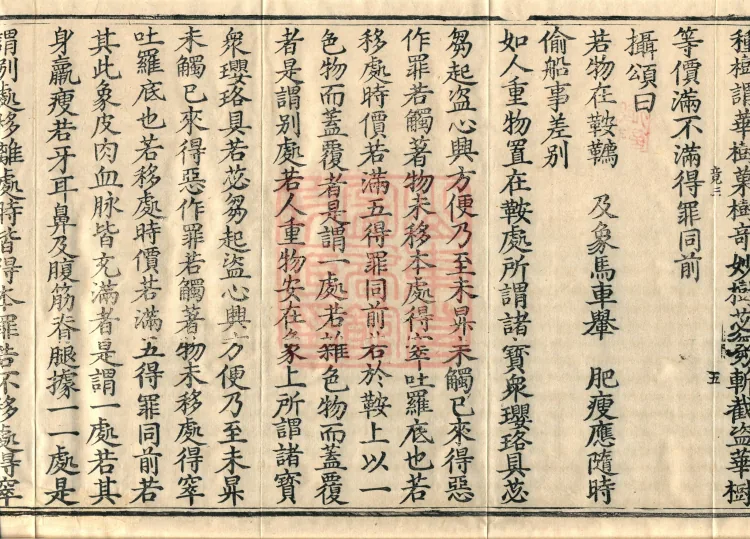 種樹謂華樹菓樹奇妙樹苾芻斬截盜華樹
竟三
五
等價滿不滿得罪同前
攝頌曰
若物在鞍韉　及象馬車轝　肥瘦應隨時
偷船事差別
如人重物置在鞍處所謂諸寶衆瓔珞具苾
芻起盜心興方便乃至未㫷未觸已來得惡
作罪若觸著物未移本處得窣吐羅底也若
移處時價若滿五得罪同前若於鞍上以一
色物而蓋覆者是謂一處若雜色物而蓋覆
者是謂別處若人重物安在象上所謂諸寶
衆瓔珞具若苾芻起盜心興方便乃至未㫷
未觸已來得惡作罪若觸著物未移處得窣
吐羅底也若移處時價若滿五得罪同前若
其此象皮肉血脉皆充滿者是謂一處若其
身羸瘦若牙耳鼻及腹筋脊腿據一一處是
謂別處移離處時皆得本罪若不移處得窣